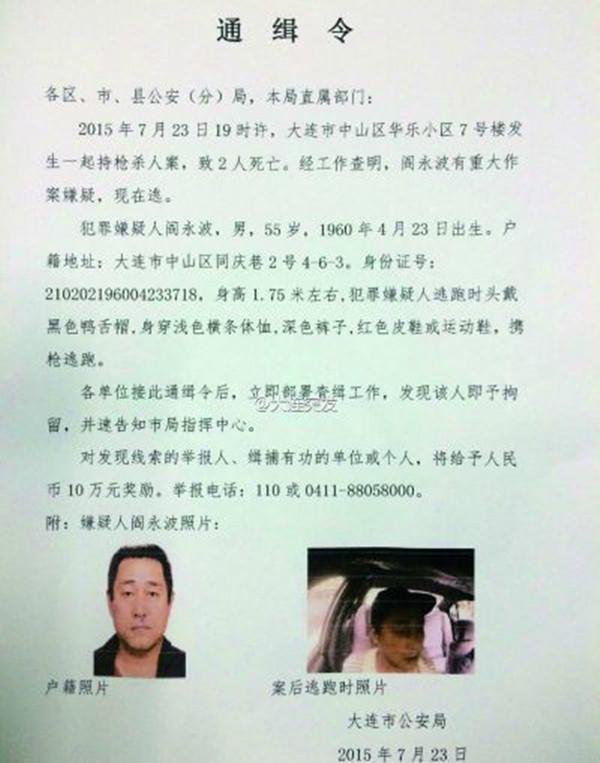 通缉令
各区、市、县公安（分）局，本局直属部门：
2015年7月23日19时许，大连市中山区华乐小区7号楼发
生一起持枪杀人案，致2人死亡。经工作查明，阎永波有重大作
案嫌疑，现在逃。
犯罪嫌疑人阎永波，男，55岁，1960年4月23日出生。户
籍地址：大连市中山区同庆巷2号4-6-3。身份证号：
210202196004233718，身高1.75米左右,犯罪嫌疑人逃跑时头戴
黑色鸭舌帽,身穿浅色横条体恤,深色裤子,红色皮鞋或运动鞋，携
枪逃跑。
各单位接此通缉令后，立即部署查缉工作，发现该人即予拘
@大连突发
留，并速告知市局指挥中心。
对发现线索的举报人、缉捕有功的单位或个人，将给予人民
币10万元奖励。举报电话：110或0411-88058000。
附：嫌疑人阎永波照片：
户籍照片
案后逃跑时照片
大连市公安局
2015年7月23日